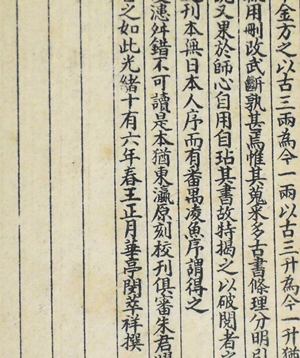 金方之以古三兩為今一兩以古三升為今一升猶
用刪改武斷孰甚焉惟其蒐采多古書條理分明引
說又果於師心自用自玷其書故特揭之以破閱者
刊本無日本人序而有番禺凌魚序謂得之
漶舛錯不可讀是本猶東瀛原刻校刊俱審朱君
之如此光緒十有六年春王正月華亭閔萃祥撰